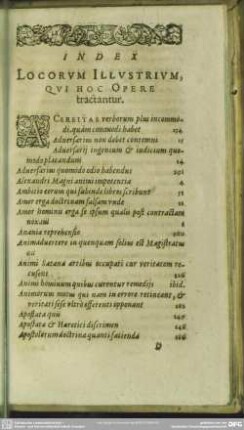 INDEX
LOCORVM ILLVSTRIVM,
QVI HOC OPERE
tractantur.
ACERBITAS verborum plus incommo-
di, quàm commodi habet
Aduersarius non debet contemni
Aduersarij ingenium & iudicium quo-
modo placandum
Aduersarius quomodo odio habendus
Alexandri Magni animi impotentia
Ambitio eorum qui subinde libros scribunt
Amor erga doctrinam falsam unde
Amor hominis erga se ipsum qualis post contractam
noxam
Anania reprehensio
Animaduertere in quenquam solius est Magistratus
Animi Satanæ artibus occupati cur veritatem re-
cusent
Animi hominum quibus curentur remedijs ibid.
Animorum motus qui nam in errore retineant, &
veritati sese vltrò offerenti opponant
Apostata qui 147
Apostata & Hæretici discrimen 148
Apostolorum doctrina quanti facienda